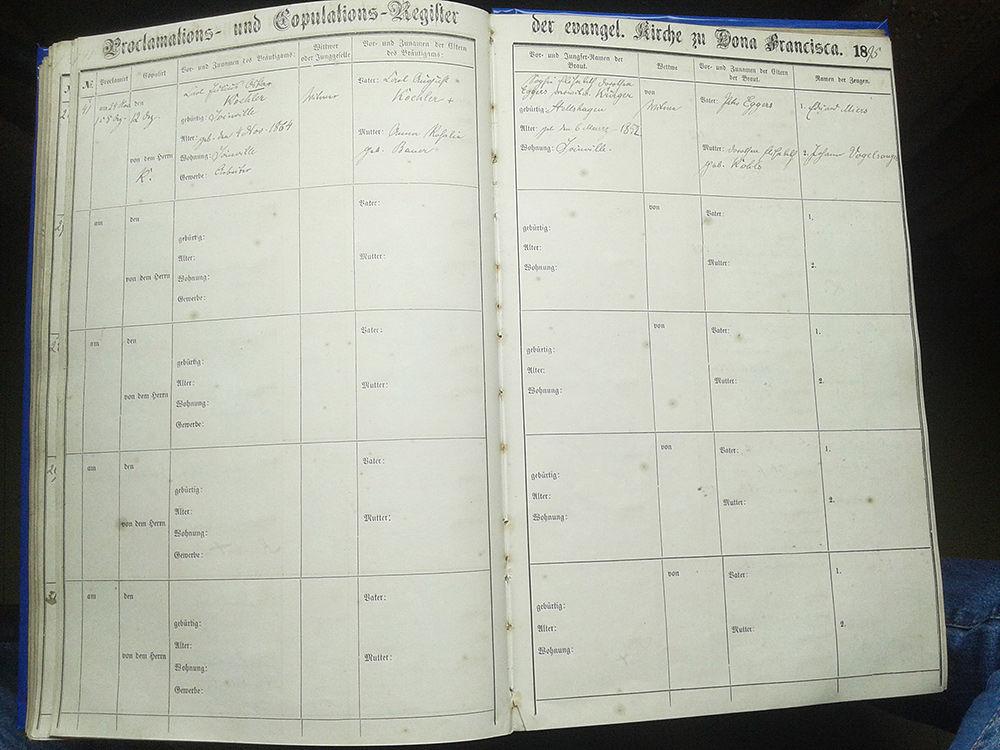 Proclamations- und Copulations-Register der evangel. Kirche zu Dona Francisca. 1895
№ Proclamirt Copulirt Vor- und Zunamen des Bräutigams: Wittwer oder Junggeselle Vor- und Zunamen der Eltern des Bräutigams:
Vor- und Jungfer-Namen der Braut. Wittwe Vor- und Zunamen der Eltern der Braut. Namen der Zeugen.
am den
Koehler
gebürtig: Joinville
Alter: geb. den 4 Nov. 1864
von dem Herrn
K.
Wohnung: Joinville
Gewerbe: Arbeiter
Wittwer
Vater: Carl August
Koehler +
Mutter: Anna Rosalie
geb. Bauer
Sophie Elisabeth Dorothea
Eggers Krüger
gebürtig:
Alter: geb den 6 März
Wohnung: Joinville.
von
Wittwe
Vater: Eggers
Mutter: Dorothea Elisabeth
geb.
1. Eduard Miers
2. Johann Vogelsanger
am den
von dem Herrn
gebürtig:
Alter:
Wohnung:
Gewerbe:
Vater:
Mutter:
gebürtig:
Alter:
Wohnung:
von
Vater:
Mutter:
1.
2.
am den
von dem Herrn
gebürtig:
Alter:
Wohnung:
Gewerbe:
Vater:
Mutter:
gebürtig:
Alter:
Wohnung:
von
Vater:
Mutter:
1.
2.
am den
von dem Herrn
gebürtig:
Alter:
Wohnung:
Gewerbe:
Vater:
Mutter:
gebürtig:
Alter:
Wohnung:
von
Vater:
Mutter:
1.
2.
am den
von dem Herrn
gebürtig:
Alter:
Wohnung:
Gewerbe:
Vater:
Mutter:
gebürtig:
Alter:
Wohnung:
von
Vater:
Mutter:
1.
2.